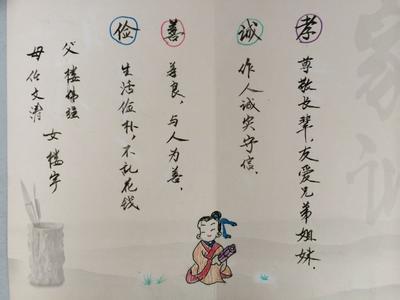 孝
尊敬长辈,友爱兄弟姐妹.
诚
作人诚实守信.
善
善良,与人为善.
俭
生活俭朴,不乱花钱
父 楼
母 任文涛
女 楼宇
家诫